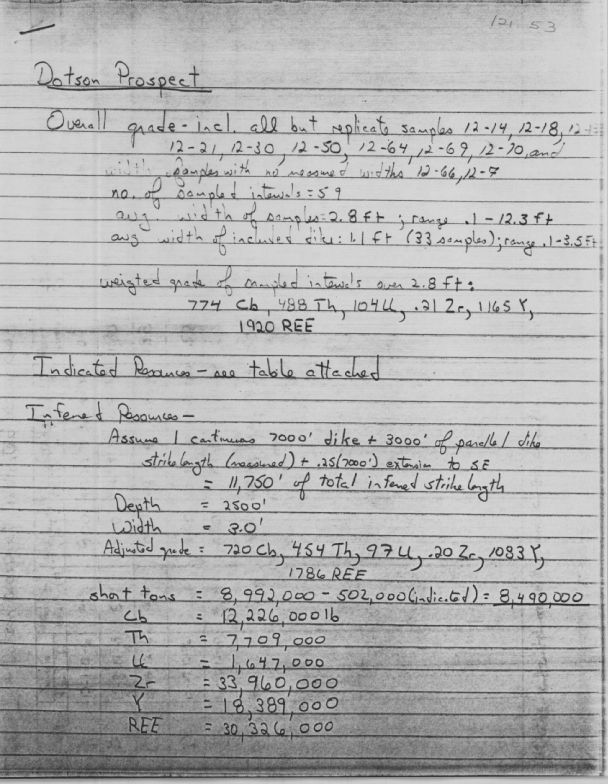 121 53
Dotson Prospect
Overall grade - incl. all but replicate samples 12-14, 12-18,
12-21, 12-30, 12-50, 12-64, 12-69, 12-70, and
samples with no measured widths 12-66, 12-7
no. of sampled intervals = 59
avg. width of samples = 2.8 ft ; range .1 - 12.3 ft
avg width of included dike: 1.1 ft (33 samples); range .1-3.5 ft
weigted grade of sampled intervals over 2.8 ft:
774 Cb, 488 Th, 104 U, .21 Zr, 1165 Y,
1920 REE
Indicated Resources - see table attached
Inferred Resources -
Assume 1 continuous 7000' dike + 3000' of parallel dike
strike length (measured) + .25(7000') extension to SE
= 11,750' of total inferred strike length
Depth = 2500'
Width = 3.0'
Adjusted grade = 720 Cb, 454 Th, 97 U, .20 Zr, 1083 Y,
1786 REE
short tons = 8,992,000 - 502,000 (indicated) = 8,490,000
Cb = 12,226,000 lb
Th = 7,709,000
U = 1,647,000
Zr = 33,960,000
Y = 18,389,000
REE = 30,326,000